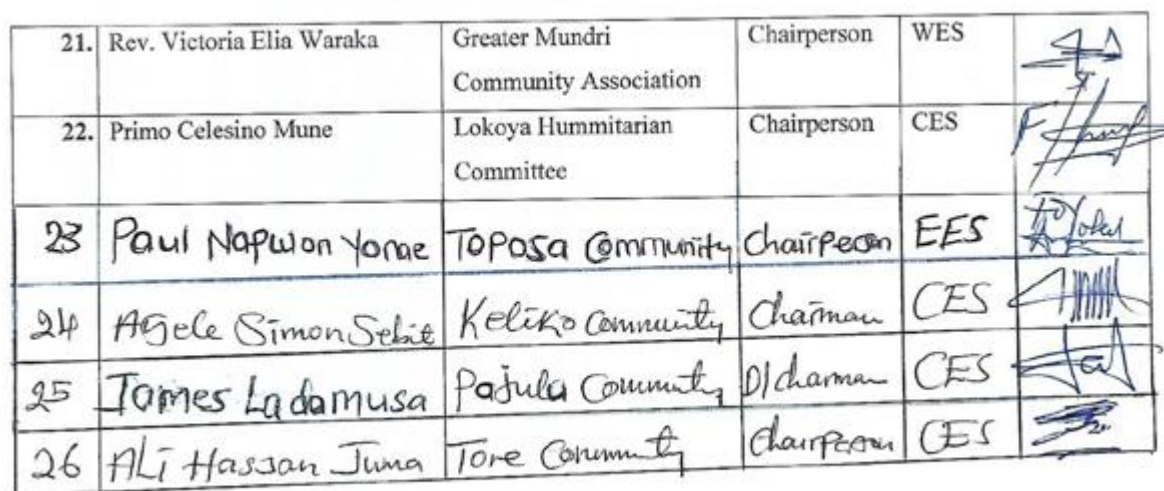 21. Rev. Victoria Elia Waraka Greater Mundri Chairperson WES
Community Association
22. Primo Celesino Mune Lokoya Hummitarian Chairperson CES
Committee
23 Paul Napwon Yonae Toposa Community Chairperson EES
24 Agele Simon Sebit Keliko Community Chairman CES
25 James Ladamusa Pajula Community D/charman CES
26 Ali Hassan Juma Tore Community Chairperson CES